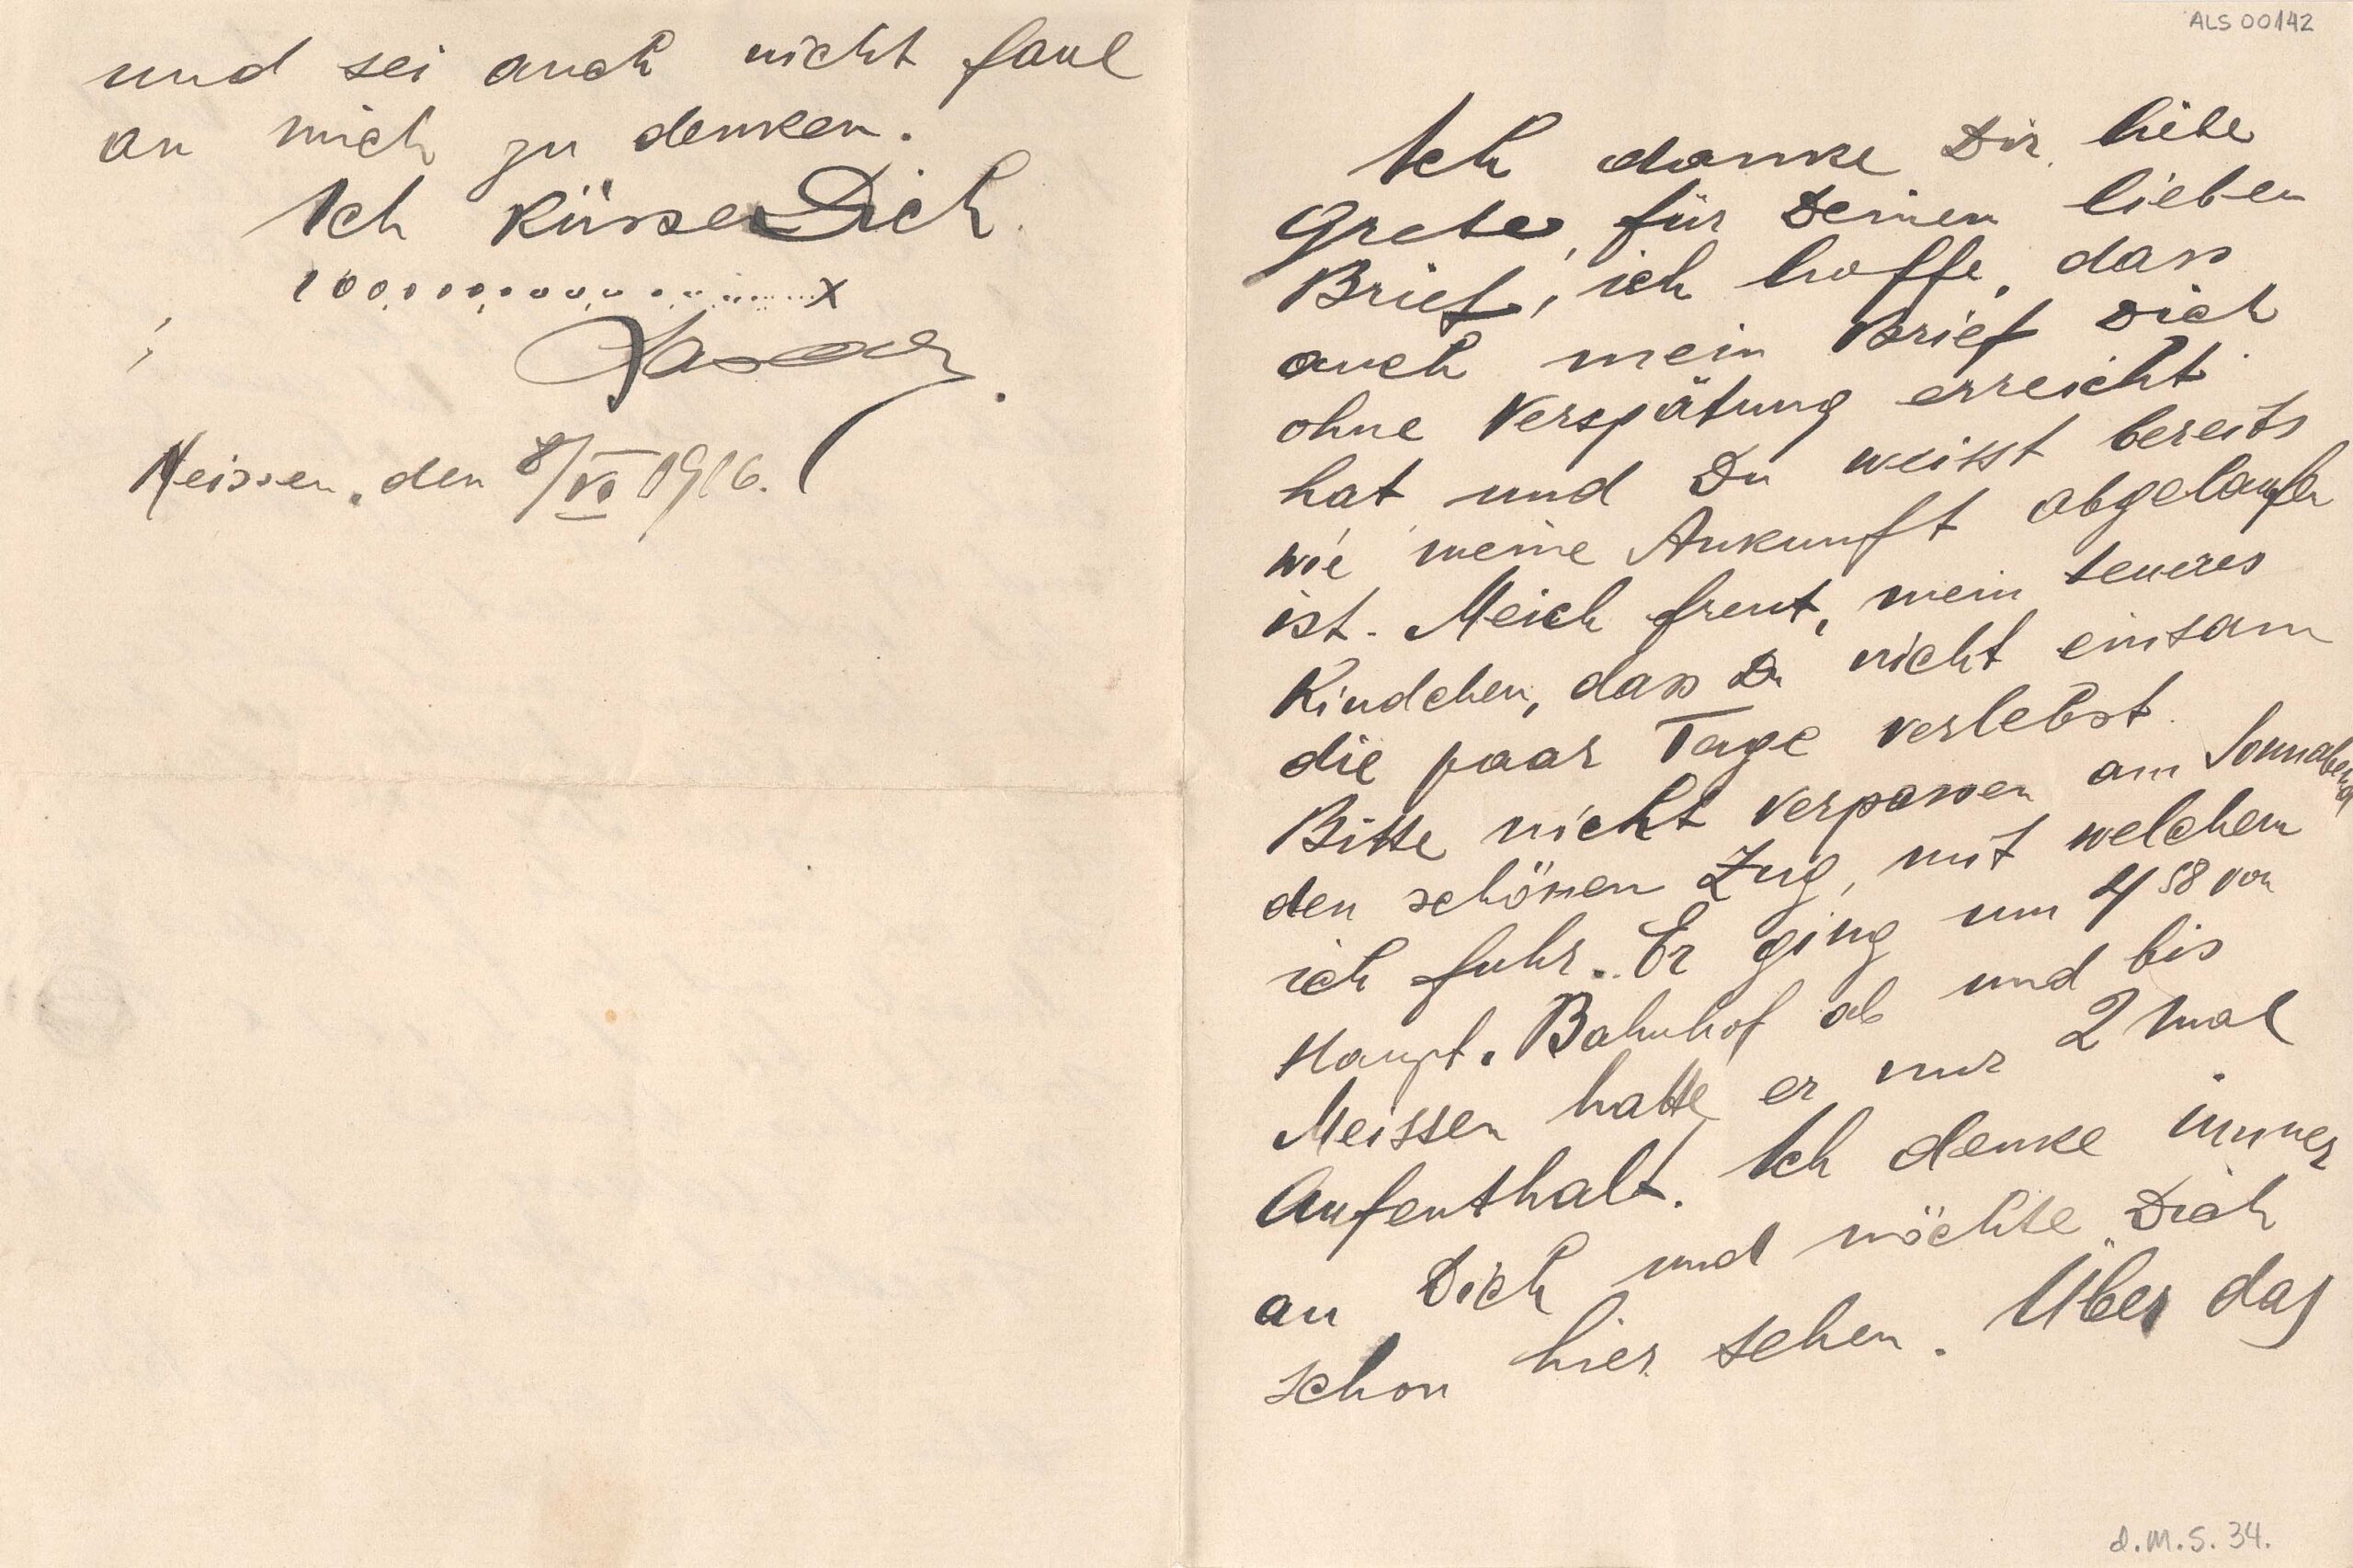 ALS 00142
Ich danke Dir, liebe
Grete, für Deinen lieben
Brief, ich hoffe, dass
auch mein Brief Dich
ohne Verspätung erreicht
hat und Du weisst bereits
wie meine Ankunft abgelaufen
ist. Meich freut, mein teueres
Kindchen, dass Du nicht einsam
die paar Tage verlebst.
Bitte nicht verpassen am Sonnabend
den schönen Zug, mit welchem
ich fuhr. Er ging um 4 58 von
Haupt. Bahnhof ab und bis
Meissen hatte er nur 2 mal
Aufenthalt. Ich denke immer
an Dich und möchte Dich
schon hier sehen. Über das
d.M.S. 34.
und sei auch nicht faul
an mich zu denken.
Ich küsse Dich
x
Meissen, den 8/VI 1916.